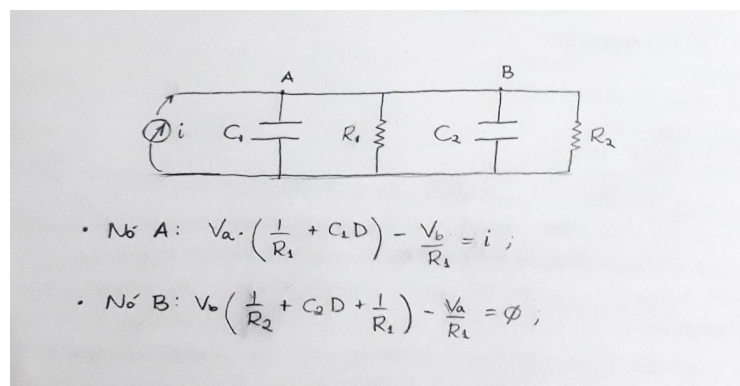 A B
i C₁ R₁ C₂ R₂
• Nó A: Va·(1/R₁ + C₁D) - Vb/R₁ = i ;
• Nó B: Vb(1/R₂ + C₂D + 1/R₁) - Va/R₁ = ∅ ;